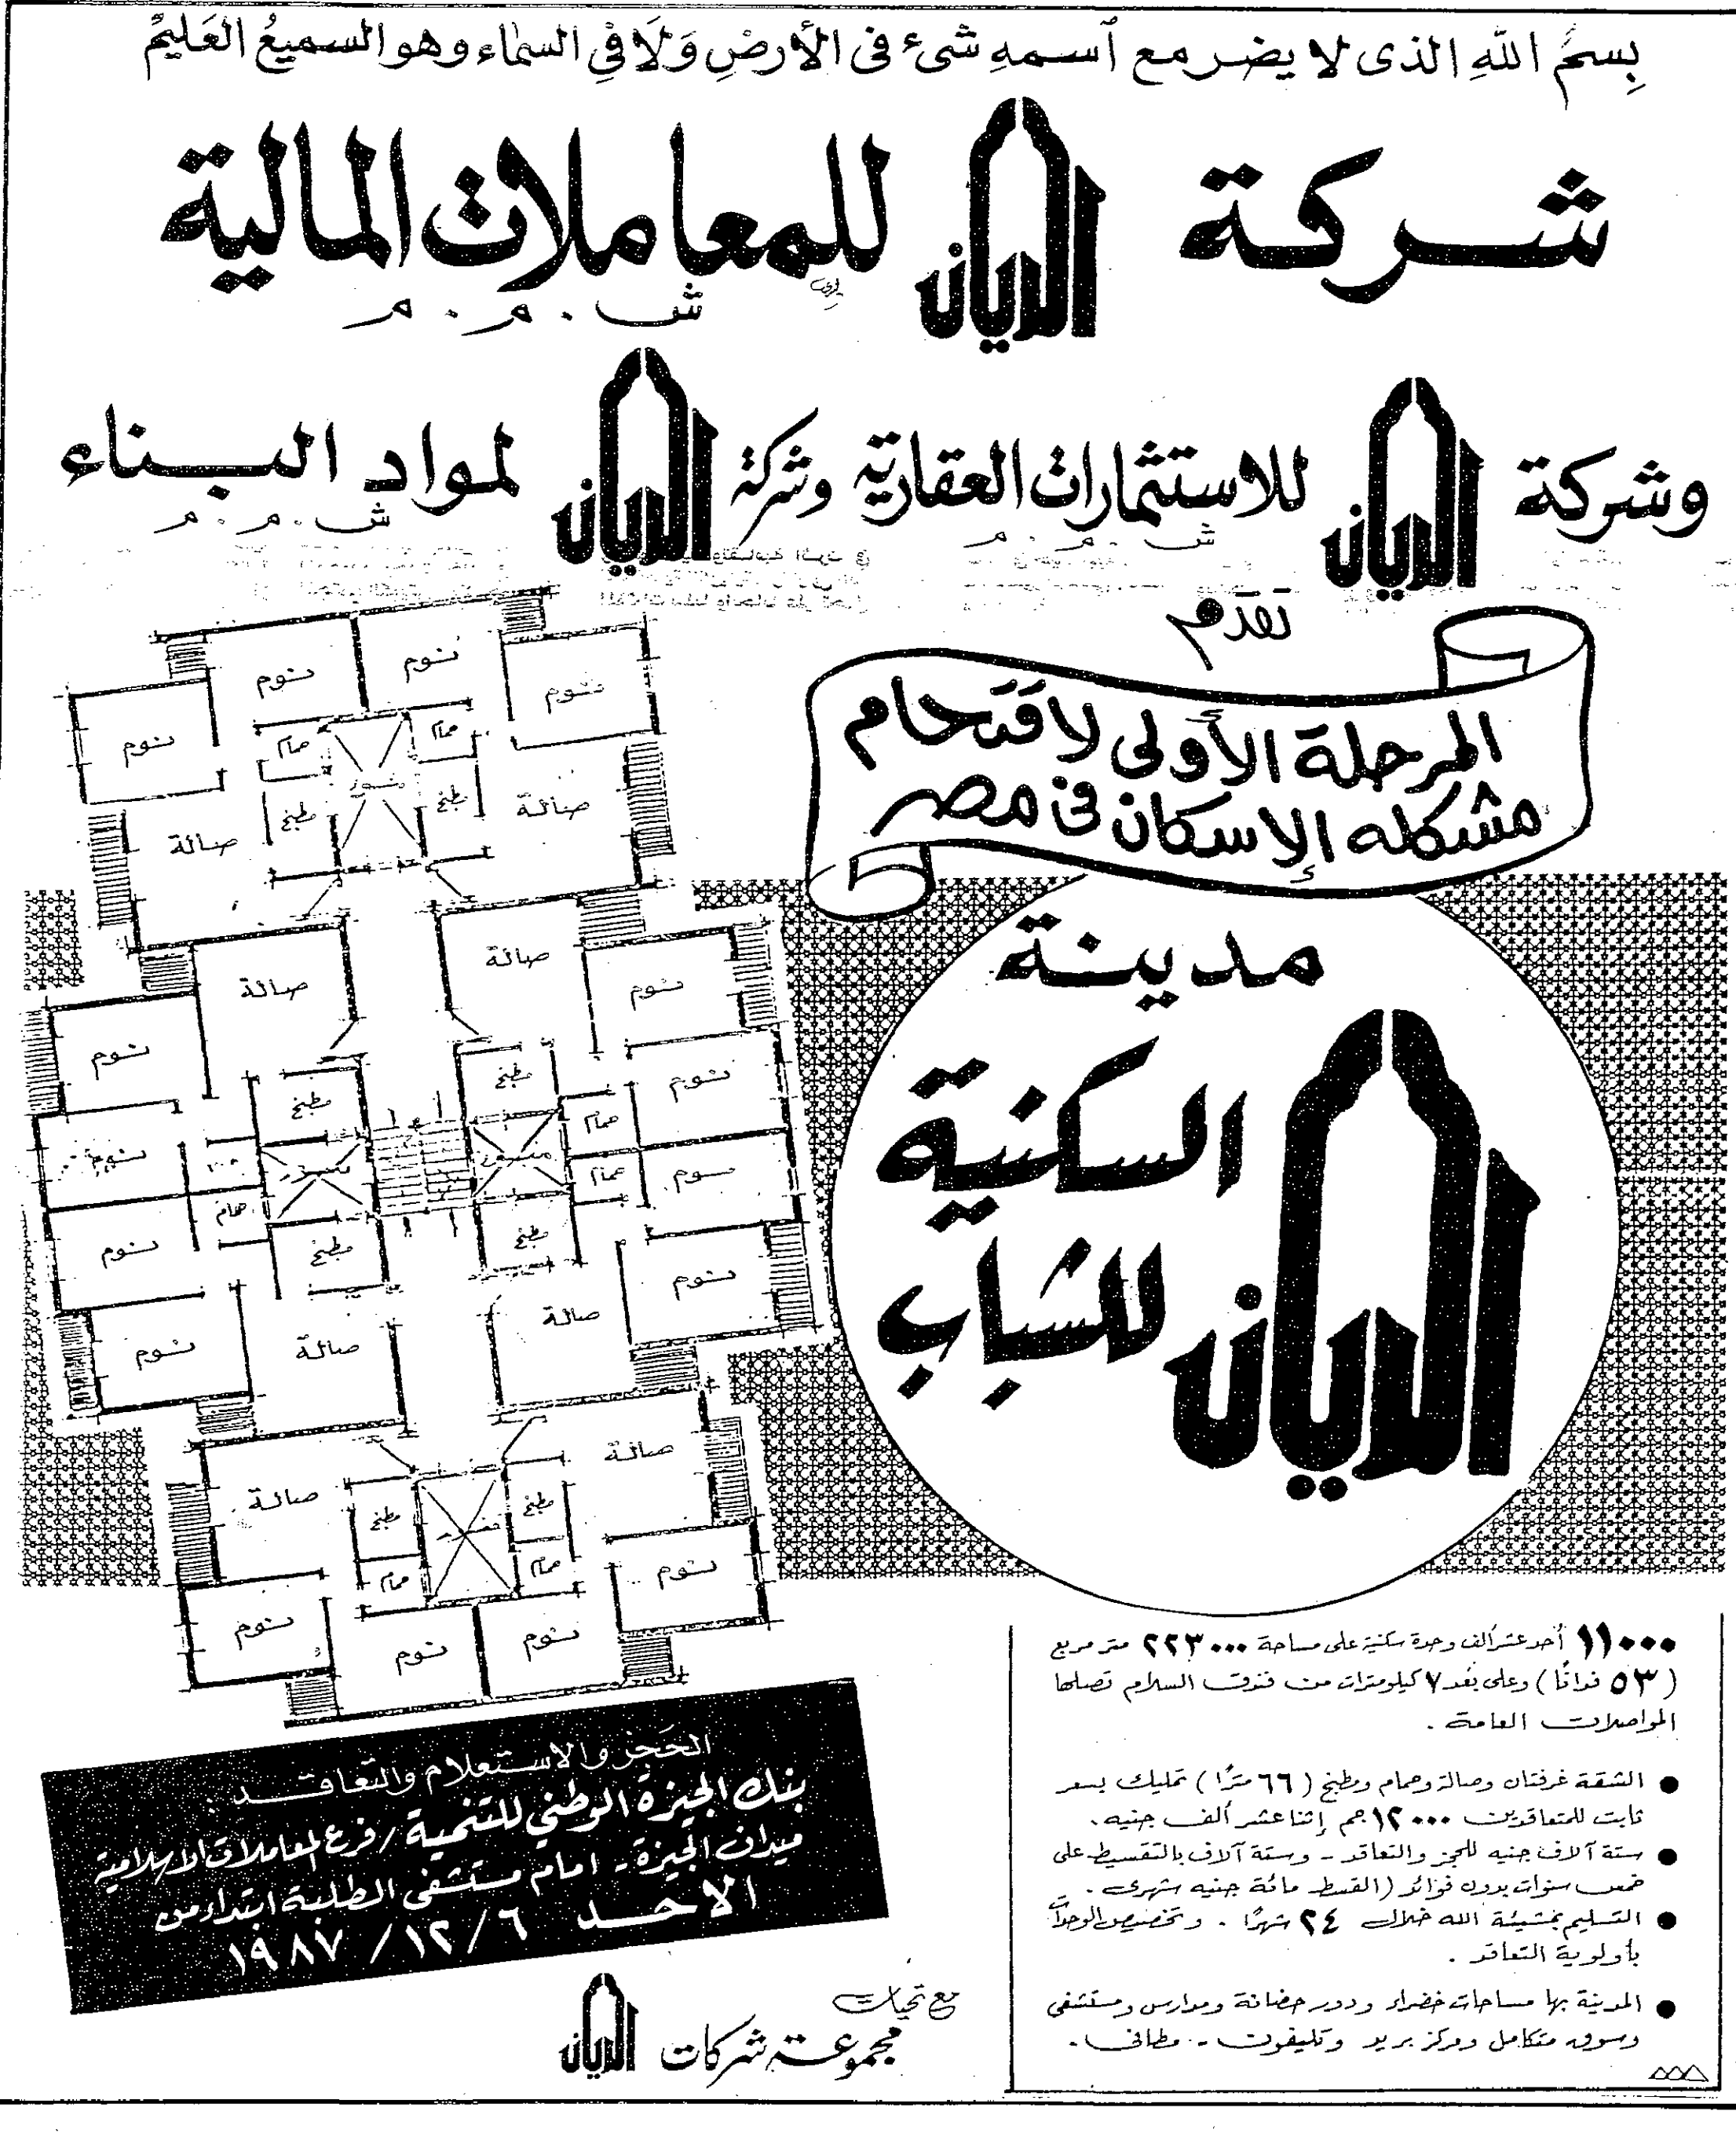 بِسمُ اللهِ الذى لا يضر مع آسمهِ شىء فى الأرضِ وَلَا فِى السماء وهو السميعُ العَليمُ
شركة الريان للمعاملات المالية
ش . م . م
وشركة الريان للاستثمارات العقارية وشركة الريان لمواد البناء
ش . م . م
ش . م . م
تقدم
المرحلة الأولى لاقتحام
مشكله الإسكان فى مصر
مدينة
الريان
السكنية
للشباب
نوم
نوم
نوم
نوم
حمام
حمام
منور
مطبخ
مطبخ
صالة
صالة
صالة
صالة
نوم
نوم
مطبخ
مطبخ
نوم
حمام
منور
منور
نوم
حمام
نوم
حمام
نوم
مطبخ
مطبخ
نوم
نوم
صالة
صالة
صالة
صالة
مطبخ
مطبخ
منور
حمام
حمام
نوم
نوم
نوم
نوم
١١٠٠٠ أحد عشر ألف وحدة سكنية على مساحة ٢٢٣٠٠٠ متر مربع
( ٥٣ فدانًا ) وعلى بُعد ٧ كيلومترات من فندق السلام تصلها
المواصلات العامة .
● الشقة غرفتان وصالة وحمام ومطبخ ( ٦٦ مترًا ) تمليك بسعر
ثابت للمتعاقدين ١٢٠٠٠ جم إثنا عشر ألف جنيه .
● ستة آلاف جنيه للحجز والتعاقد - وستة آلاف بالتقسيط على
خمس سنوات بدون فوائد ( القسط مائة جنيه شهرى .
● التسليم بمشيئة الله خلال ٢٤ شهرًا . وتخصيص الوحدات
بأولوية التعاقد .
● المدينة بها مساحات خضراء ودور حضانة ومدارس ومستشفى
وسوق متكامل ومركز بريد وتليفون - مطافى .
الحَجز والاستعلام والتعاقد :
بنك الجيزة الوطني للتنمية / فرع المعاملات الإسلامية
ميدان الجيزة - امام مستشفى الطلبة ابتداء من
الأحد ٦ / ١٢ / ١٩٨٧
مع تحيات
مجموعة شركات الريان